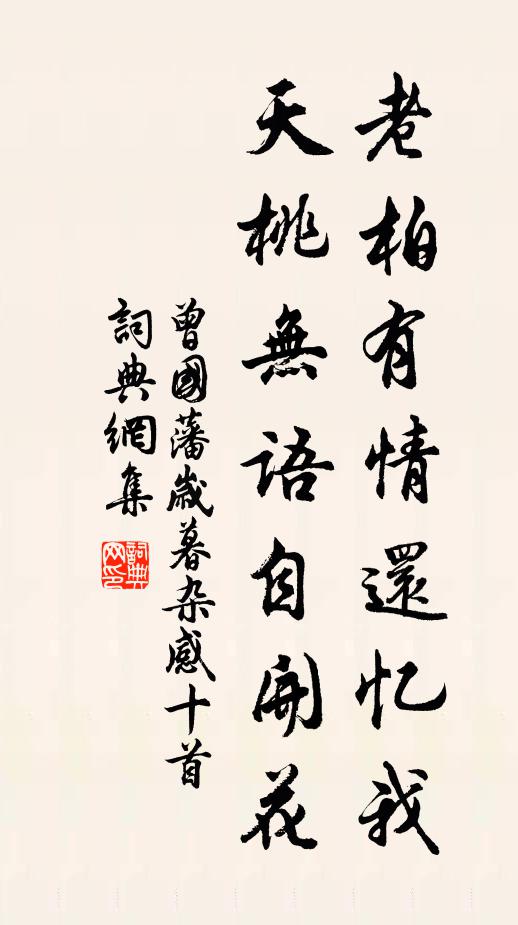 老柏有情還忆我
天桃無語自開花
曾國藩歲暮杂感十首
詞典網集
詞典網印